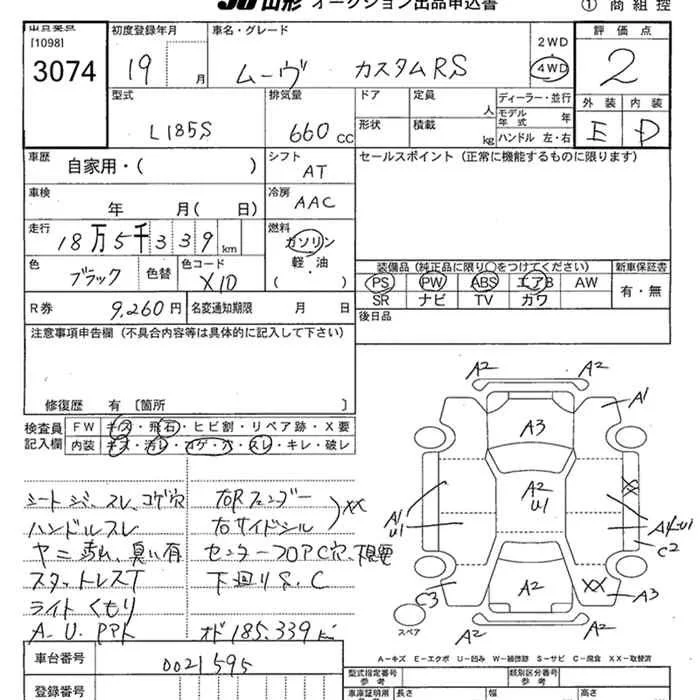 JU山形 オークション出品申込書
① 商 組 控
[1098]
3074
初度登録年月
19 月
車名・グレード
ムーヴ カスタムRS
2WD
4WD
評 価 点
2
型式
L185S
排気量
660 CC
ドア
定員
人
形状
積載
kg
ディーラー・並行
モデル年式 年
ハンドル 左・右
外 装
内 装
E
D
車歴
自家用・( )
シフト
AT
セールスポイント (正常に機能するものに限ります)
車検
年 月( 日)
冷房
AAC
走行
18万5千339km
燃料
ガソリン
軽・油
( )
色
ブラック
色替
色コード
X10
装備品 (純正品に限り○をつけてください)
PS PW ABS エアB AW
SR ナビ TV カワ
新車保証書
有・無
R券
9,260円
名変通知期限 月 日
後日品
注意事項申告欄 (不具合内容等は具体的に記入して下さい)
修復歴 有 [箇所 ]
検査員
記入欄
FW
キズ・飛石・ヒビ割・リペア跡・X要
内装
キズ・汚レ・コゲ・穴・スレ・キレ・破レ
シートシミ、スレ、コゲ穴
ハンドルスレ
ヤニ汚れ、臭い有
スタットレスT
ライトくもり
A.U.PPト
右Rフェンダー
右サイドシル
XX
センターフロアC穴、
下廻りS、C
オド185.339km
A2
A2
A1
A3
A2
U1
A1
U1
XX
C2
C3
A2
XX
A3
A2
A2
スペア
A-キズ E-エクボ U-凹み W-補修跡 S-サビ C-腐食 XX-取替済
車台番号
0021595
登録番号
型式指定番号
参 考
類別区分番号
参 考
車庫証明用
長さ
幅
高さ